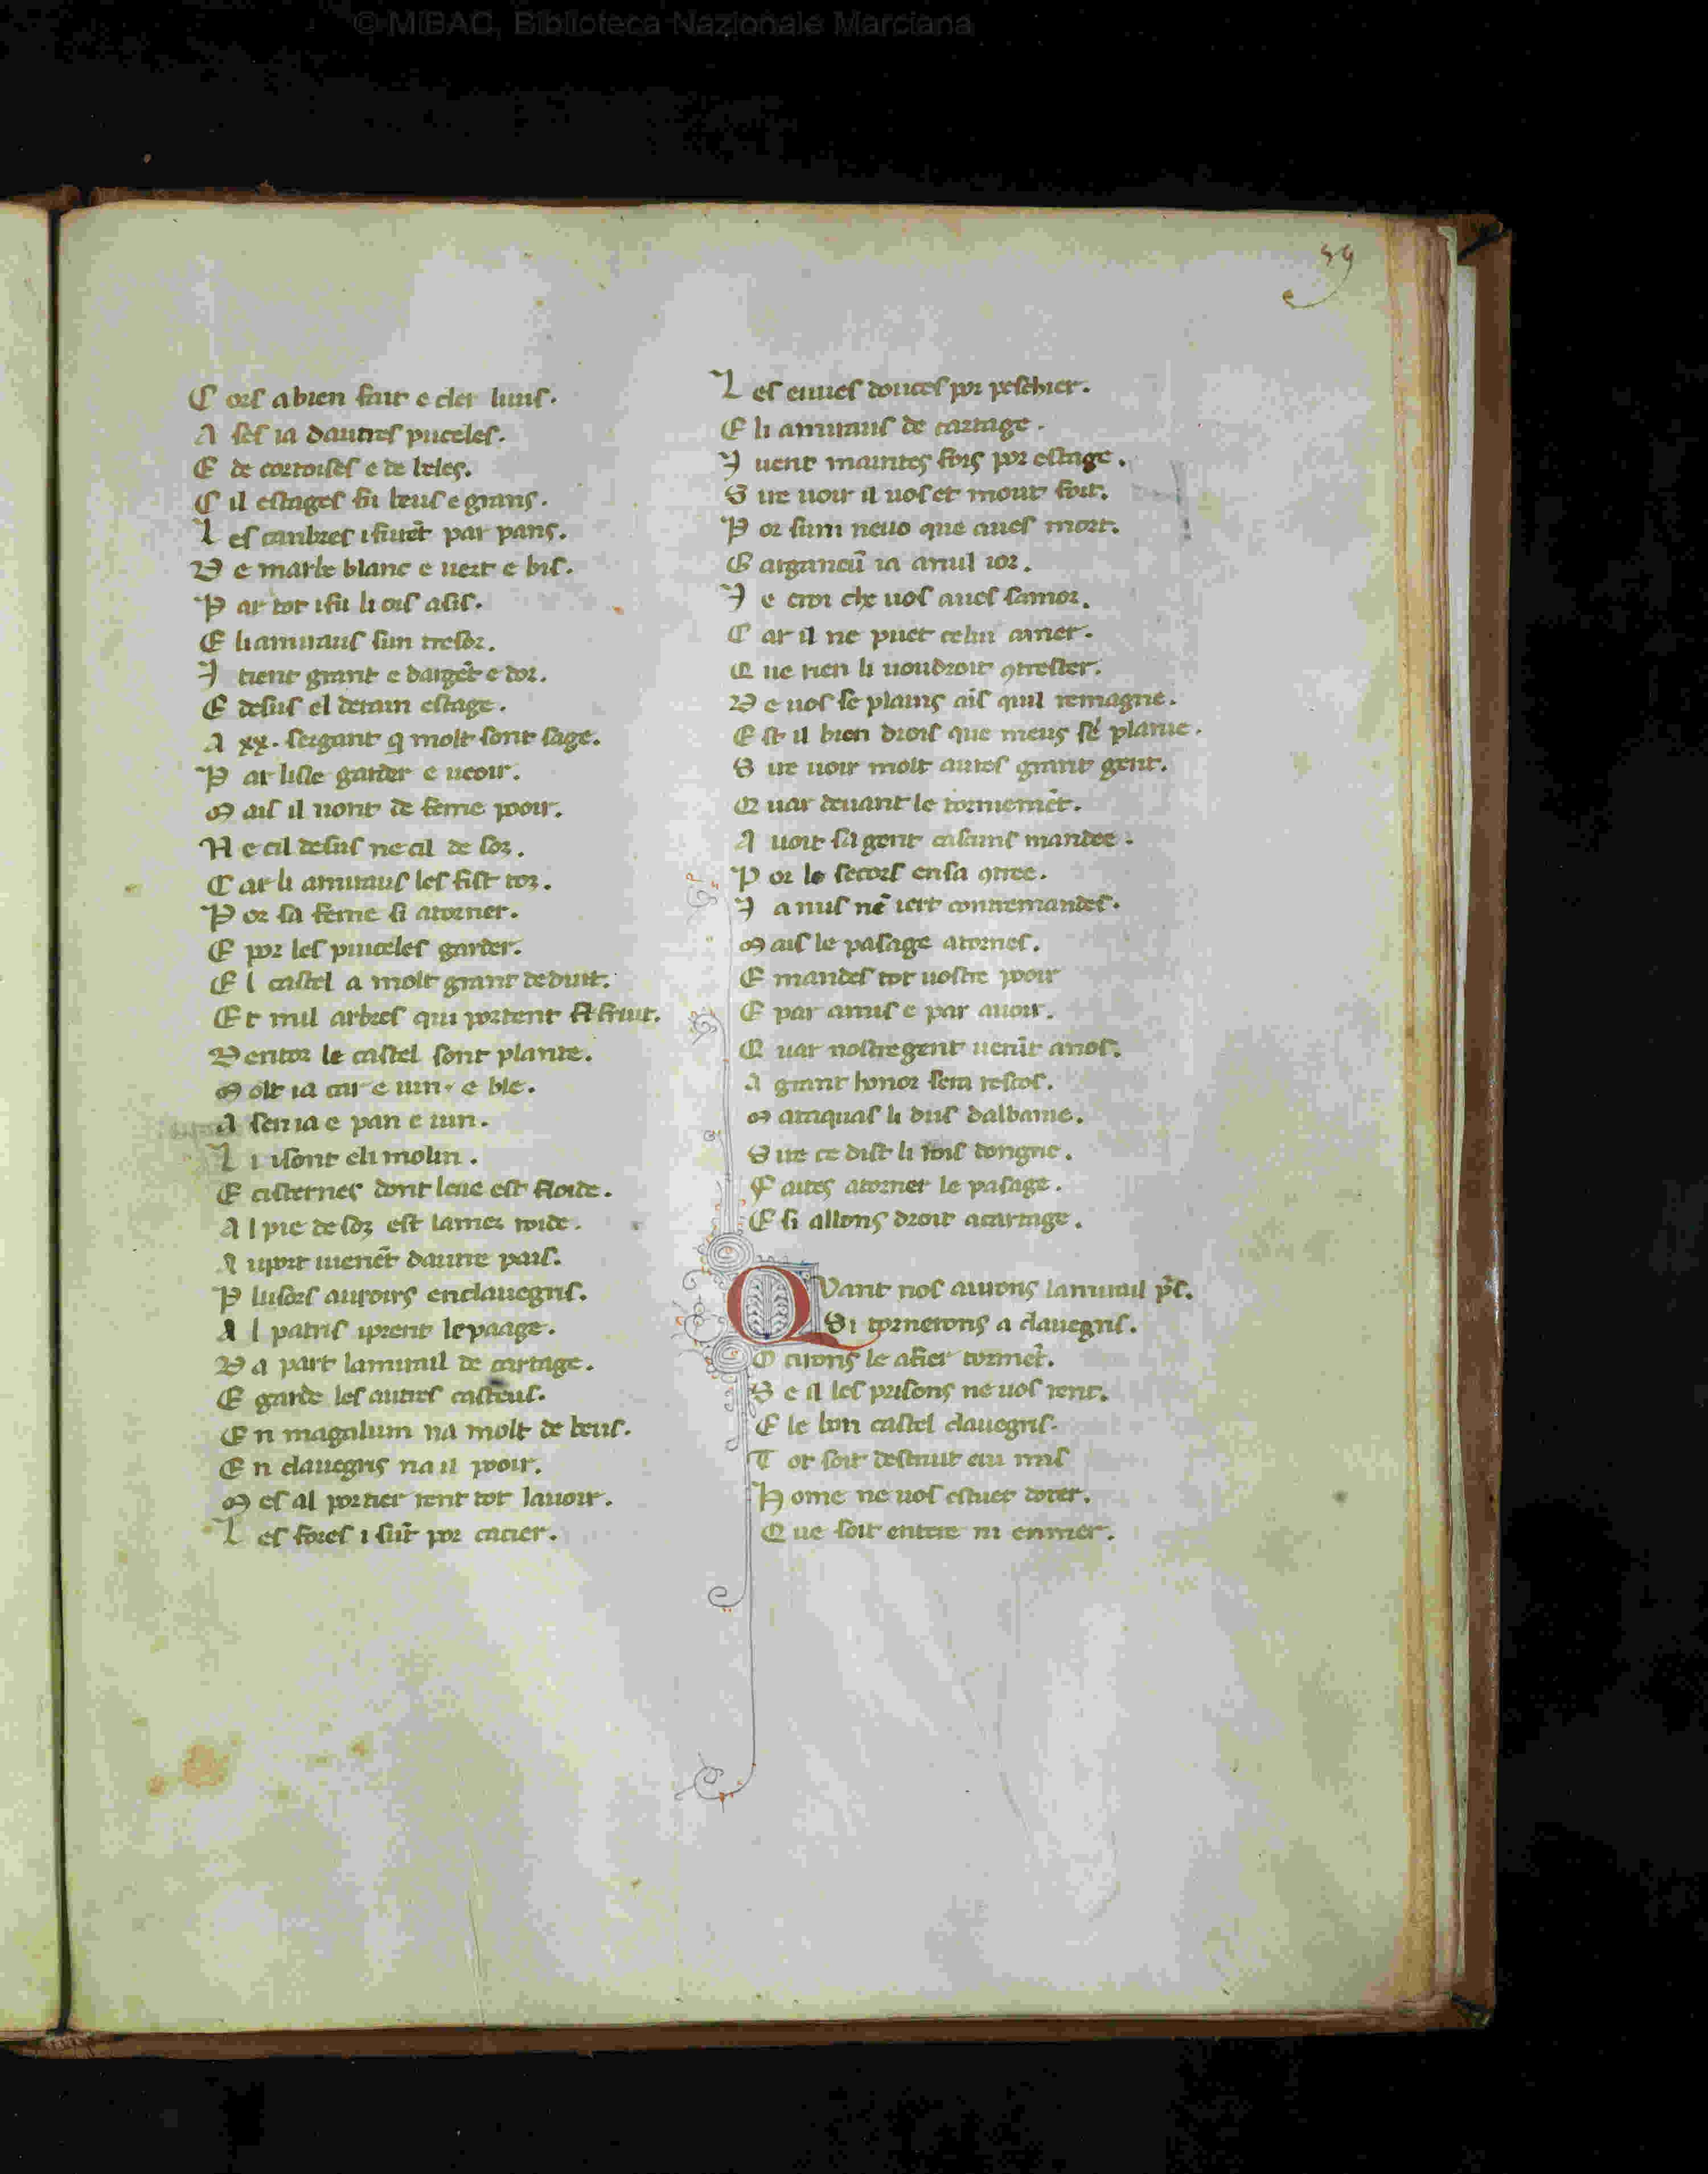 © MiBAC, Biblioteca Nazionale Marciana
59
C ors a bien fait e cler luuis.
A ses ia dautres puceles.
E de cortoises e de beles.
C il estages fu beus e grans.
L es canbres i furēt par pans.
D e marbe blanc e uert e bis.
P ar tot i fu li ors asis.
E li amiraus sun tresor.
I tient grant e dargēt e dor.
E desus el derain estage.
A xx. sergant q molt sont sage.
P ar liste garder e ueoir.
M ais il nont de feme pooir.
N e cil desus ne cil de soz.
C ar li amiraus les fist toz.
P or sa feme si atorner.
E por les puiceles garder.
E l castel a molt grant deduit.
Et mil arbres qui portent fruit.
D entor le castel sont plante.
M olt ia car e uin e ble.
A sen ia e pan e uin.
L i isont eli molin.
E cisternes dont leue est froide.
A l pie de soz est lamer roide.
A u port uienēt dautre pais.
P lusors auoirs en clauegris.
A l patris iprent le paage.
D a part lamirail de cartage.
E garde les autres casteus.
E n magalum na molt de beus.
E n clauegris na il pooir.
M es al portier rent tot lauoir.
L es fores i sūt por cacier.
L es euues douces por peschier.
E li amiraus de cartage.
I uent maintes fois por estage.
S ire uoir il uos et mout fort.
P or sun neuo que aues mort.
G arganeū ia amil ior.
I e croi che uos aues samor.
C ar il ne puet celui amer.
Q ue rien li uoudroit ꝯtrester.
D e uos se plains ais quil remagne.
E st il bien drois que meus se plaine.
S ire uoir molt aures grant gent.
Q uar deuant le tormemēt.
A uoit sa gent casuns mandee.
P or le secors en sa ꝯtree.
I a nus nē iert contremandes.
M ais le pasage atornes.
E mandes tot uostre pooir
E par amis e par auoir.
Q uar nostre gent uenīt anos.
A grant honor sera rescos.
M ataquas li dus dalbanie.
S ire ce dist li rois dongrie.
F aites atorner le pasage.
E si allons droit acartage.
QVant nos aurons lamirail pʳs.
Si tornerons a clauegris.
O cirons le a fier tormēt.
S e il les prisons ne uos rent.
E le bon castel clauegris.
T ot soit destruit eiu mis
H ome ne uos estuet doter.
Q ue soit enterre ni enmer.